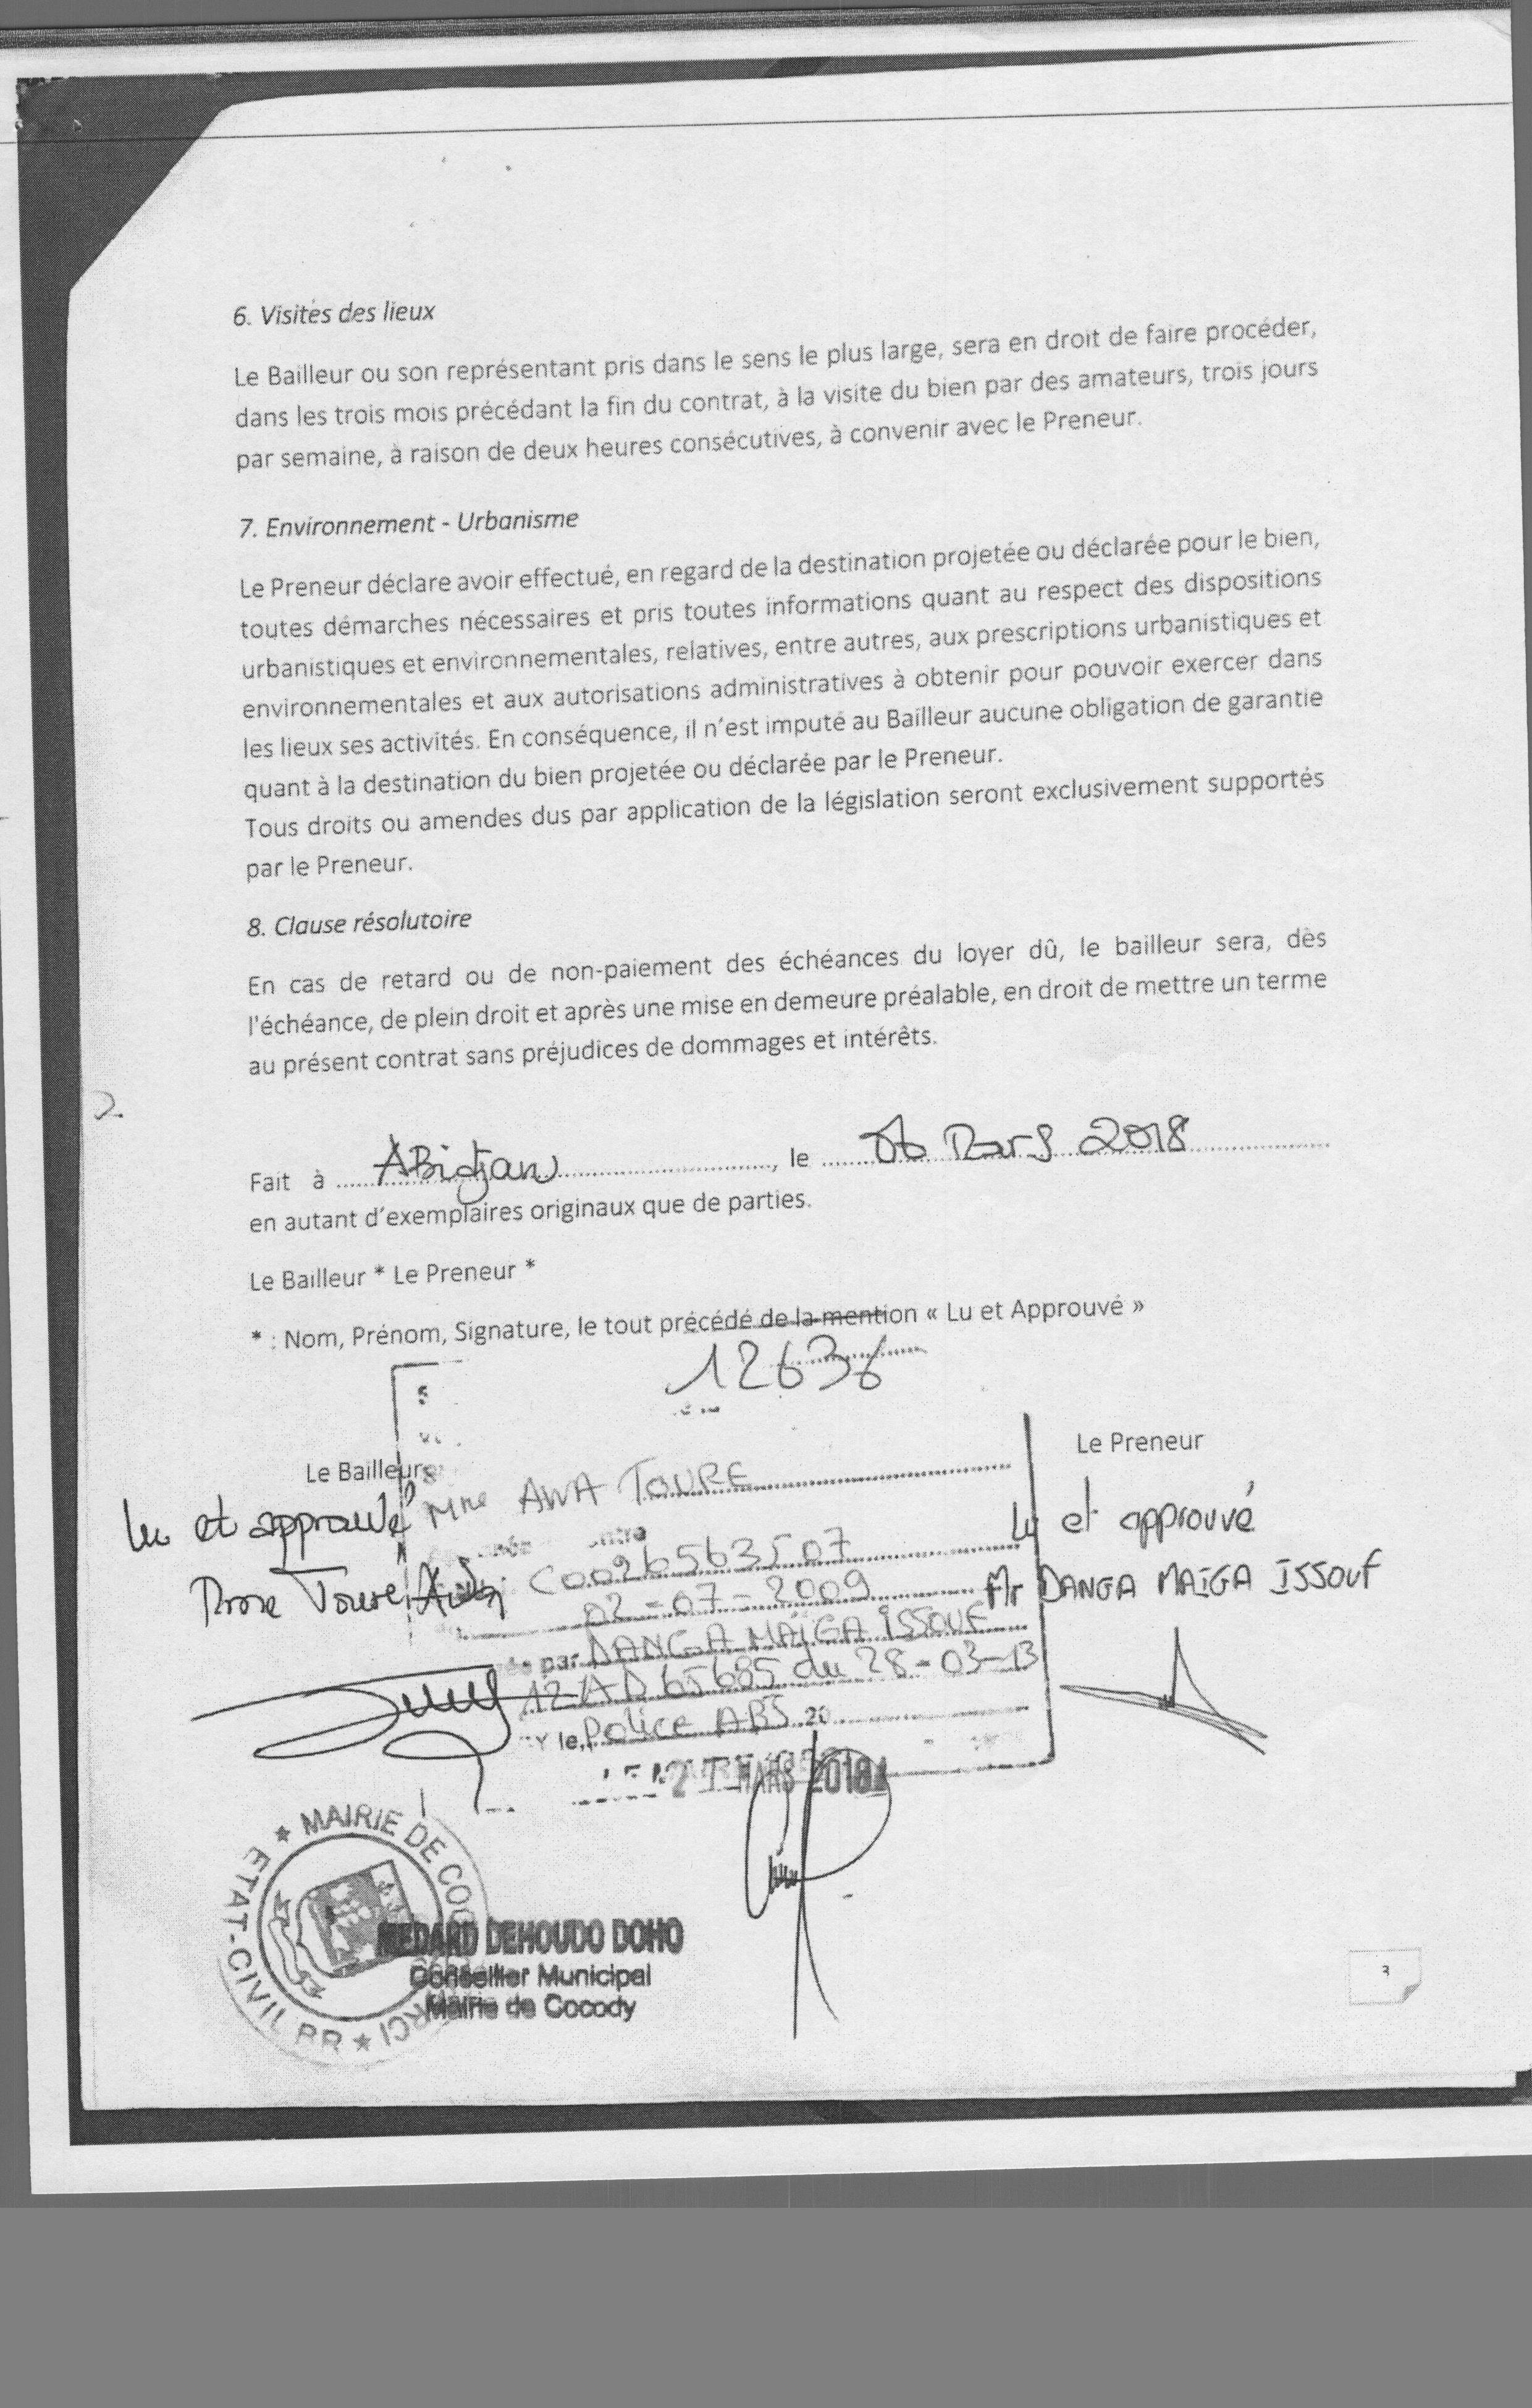 6. Visites des lieux
Le Bailleur ou son représentant pris dans le sens le plus large, sera en droit de faire procéder,
dans les trois mois précédant la fin du contrat, à la visite du bien par des amateurs, trois jours
par semaine, à raison de deux heures consécutives, à convenir avec le Preneur.
7. Environnement - Urbanisme
Le Preneur déclare avoir effectué, en regard de la destination projetée ou déclarée pour le bien,
toutes démarches nécessaires et pris toutes informations quant au respect des dispositions
urbanistiques et environnementales, relatives, entre autres, aux prescriptions urbanistiques et
environnementales et aux autorisations administratives à obtenir pour pouvoir exercer dans
les lieux ses activités. En conséquence, il n'est imputé au Bailleur aucune obligation de garantie
quant à la destination du bien projetée ou déclarée par le Preneur.
Tous droits ou amendes dus par application de la législation seront exclusivement supportés
par le Preneur.
8. Clause résolutoire
En cas de retard ou de non-paiement des échéances du loyer dû, le bailleur sera, dès
l'échéance, de plein droit et après une mise en demeure préalable, en droit de mettre un terme
au présent contrat sans préjudices de dommages et intérêts.
Fait à ABidjan, le Mars 2018
en autant d'exemplaires originaux que de parties.
Le Bailleur * Le Preneur *
* : Nom, Prénom, Signature, le tout précédé de la mention « Lu et Approuvé »
12636
Le Bailleur
Le Preneur
Mme AWA TOURE
Lu et approuvé
Lu et approuvé
C0096563507
Mme Touré Awa
02-07-2009
Mr DANGA MAÏGA ISSOUF
par DANGA MAÏGA ISSOUF
12AD65685 du 28-03-13
Y le, Police ABJ 20
MARS 2018
MAIRIE DE COCODY
ETAT-CIVIL
MEDARD DEHOUDO DOHO
Conseiller Municipal
Mairie de Cocody
3